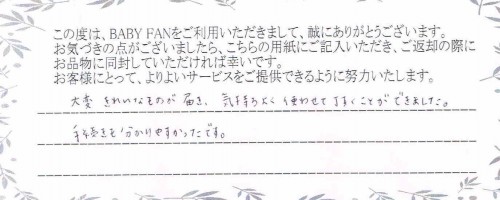 この度は、BABY FANをご利用いただきまして、誠にありがとうございます。
お気づきの点がございましたら、こちらの用紙にご記入いただき、ご返却の際に
お品物に同封していただければ幸いです。
お客様にとって、よりよいサービスをご提供できるように努力いたします。
大変 きれいなものが届き、気持ちよく使わせて頂くことができました。
手続きも分かりやすかったです。